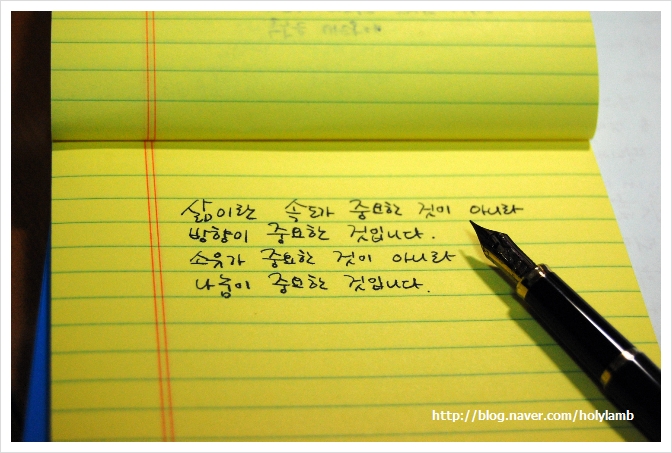 삶이란 속도가 중요한 것이 아니라
방향이 중요한 것입니다.
소유가 중요한 것이 아니라
나눔이 중요한 것입니다.
http://blog.naver.com/holylamb